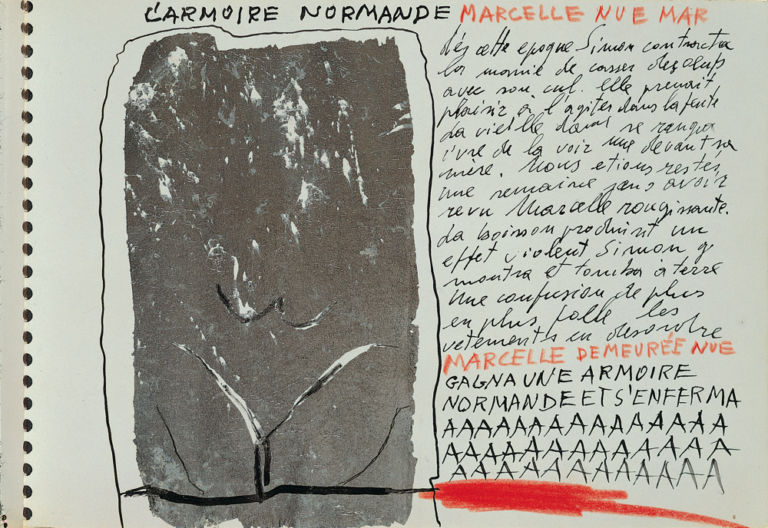 L'ARMOIRE NORMANDE MARCELLE NUE MAR
dés cette epoque Simon contracta
la manie de casser des oeufs
avec son cul. Elle prenait
plaisir à l'agiter dans la fente
La vieille dame se rangea
ivre de la voir nue devant sa
mère. Nous etions restés
une semaine sans avoir
revu Marcelle rougissante.
La boisson produisit un
effet violent Simon
montra et tomba à terre
Une confusion de plus
en plus folle les
vetements en desordre
MARCELLE DEMEURÉE NUE
GAGNA UNE ARMOIRE
NORMANDE ET S'ENFERMA
AAAAAAAAAAAAAAA
AAAAAAAAAAAAAA
AAAAAAAAAAAAA